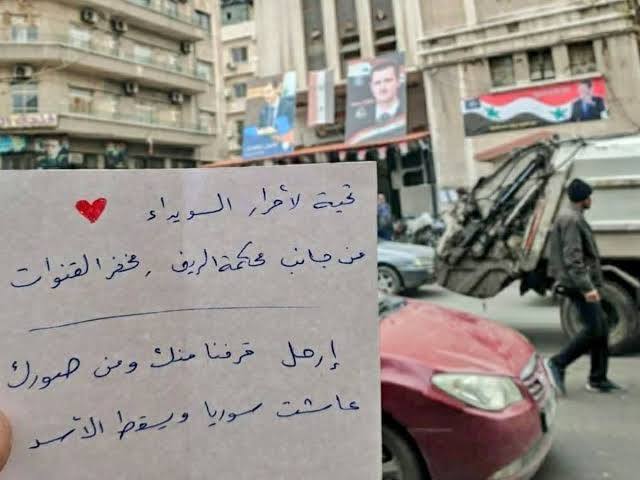 تحية لأحرار السويداء
من جانب محكمة الريف ، مخفر القنوات
إرحل قرفنا منك ومن صورك
عاشت سوريا ويسقط الأسد